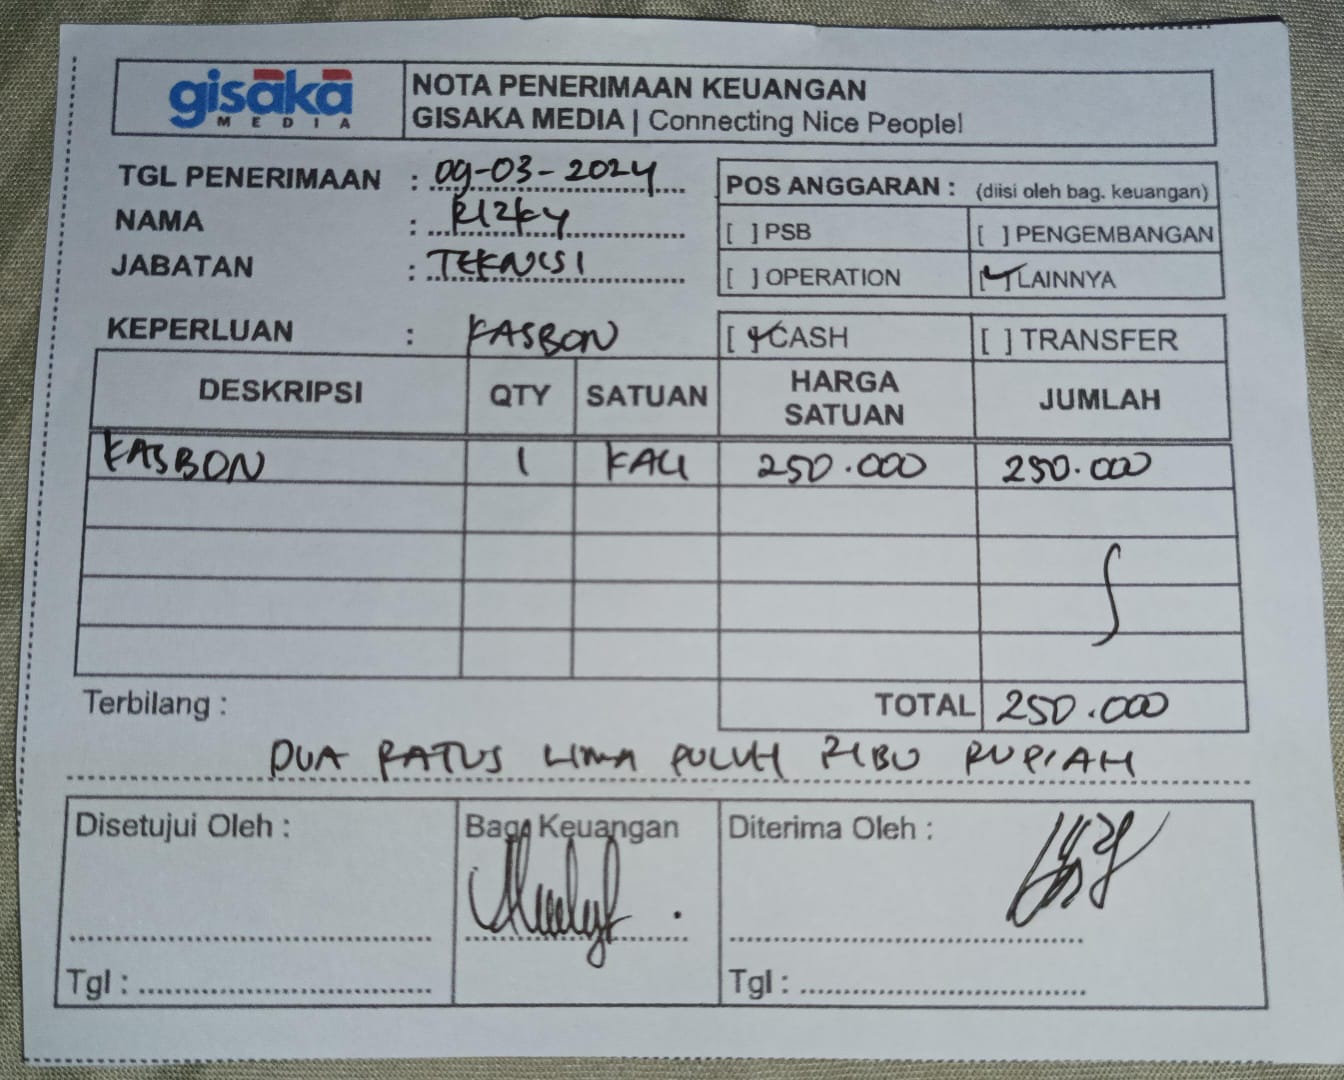 gisaka
MEDIA
NOTA PENERIMAAN KEUANGAN
GISAKA MEDIA | Connecting Nice People!
TGL PENERIMAAN : 09-03-2024
NAMA : RIZKY
JABATAN : TEKNISI
POS ANGGARAN : (diisi oleh bag. keuangan)
[ ] PSB [ ] PENGEMBANGAN
[ ] OPERATION [✓] LAINNYA
KEPERLUAN : KASBON [✓] CASH [ ] TRANSFER
DESKRIPSI QTY SATUAN HARGA SATUAN JUMLAH
KASBON 1 KALI 250.000 250.000
Terbilang : TOTAL 250.000
DUA RATUS LIMA PULUH RIBU RUPIAH
Disetujui Oleh : Bag. Keuangan Diterima Oleh :
Tgl : Tgl :